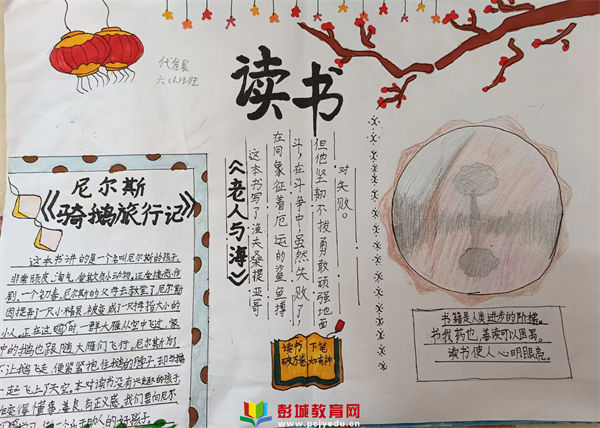 读书
六
尼尔斯
《骑鹅旅行记》
这本书讲的是一个名叫尼尔斯的孩子,
非常顽皮、淘气,欺负小动物,还会搞恶作
剧,一个初春,尼尔斯的父母去教堂了,尼尔斯
因捉弄了一只小精灵,被变成了一只拇指大的
小人,正在这时一群大雁从空中飞过,家
中的鹅也跟随大雁们飞行,尼尔斯为了
不让鹅飞走,便紧紧抱住鹅的脖子,却与鹅
一起飞上了天空,本对读书没有兴趣的孩子
变得懂事、善良、有正义感,我们要向尼尔
学习,做一个助人的好孩子。
《老人与海》
这本书写了渔夫桑提亚哥
在同象征着厄运的鲨鱼搏
斗,在斗争中虽然失败了
但他坚韧不拔勇敢顽强地面
对失败。
读书
破万卷
下笔
如有神
书籍是人类进步的阶梯。
书犹药也,善读可以医愚。
读书使人心明眼亮。
彭城教育网
www.pcjyedu.cn